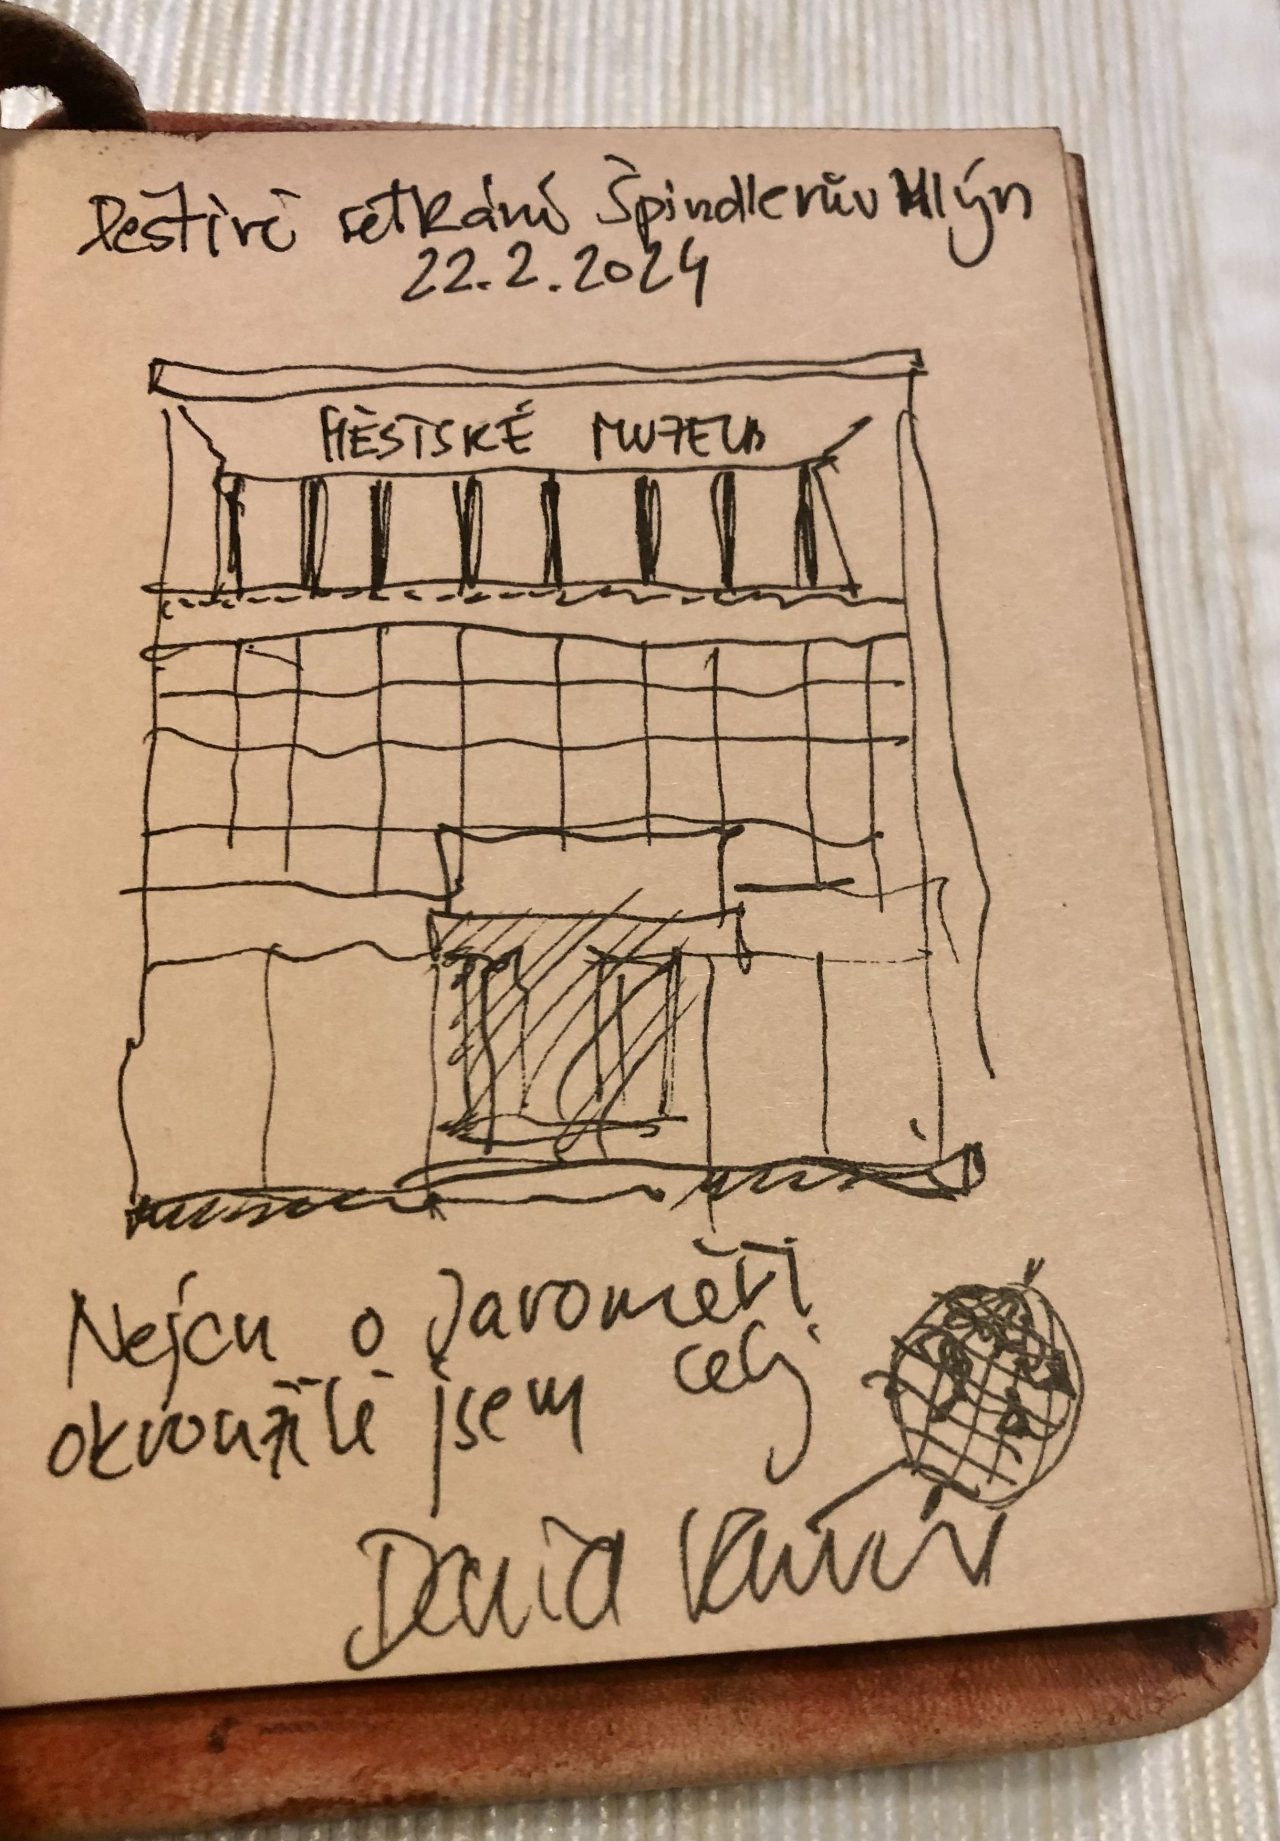 Deštivé setkání Špindlerův Mlýn
22.2.2024
MĚSTSKÉ MUZEUM
Nejen o Jaroměři
okroužili jsem celý
David